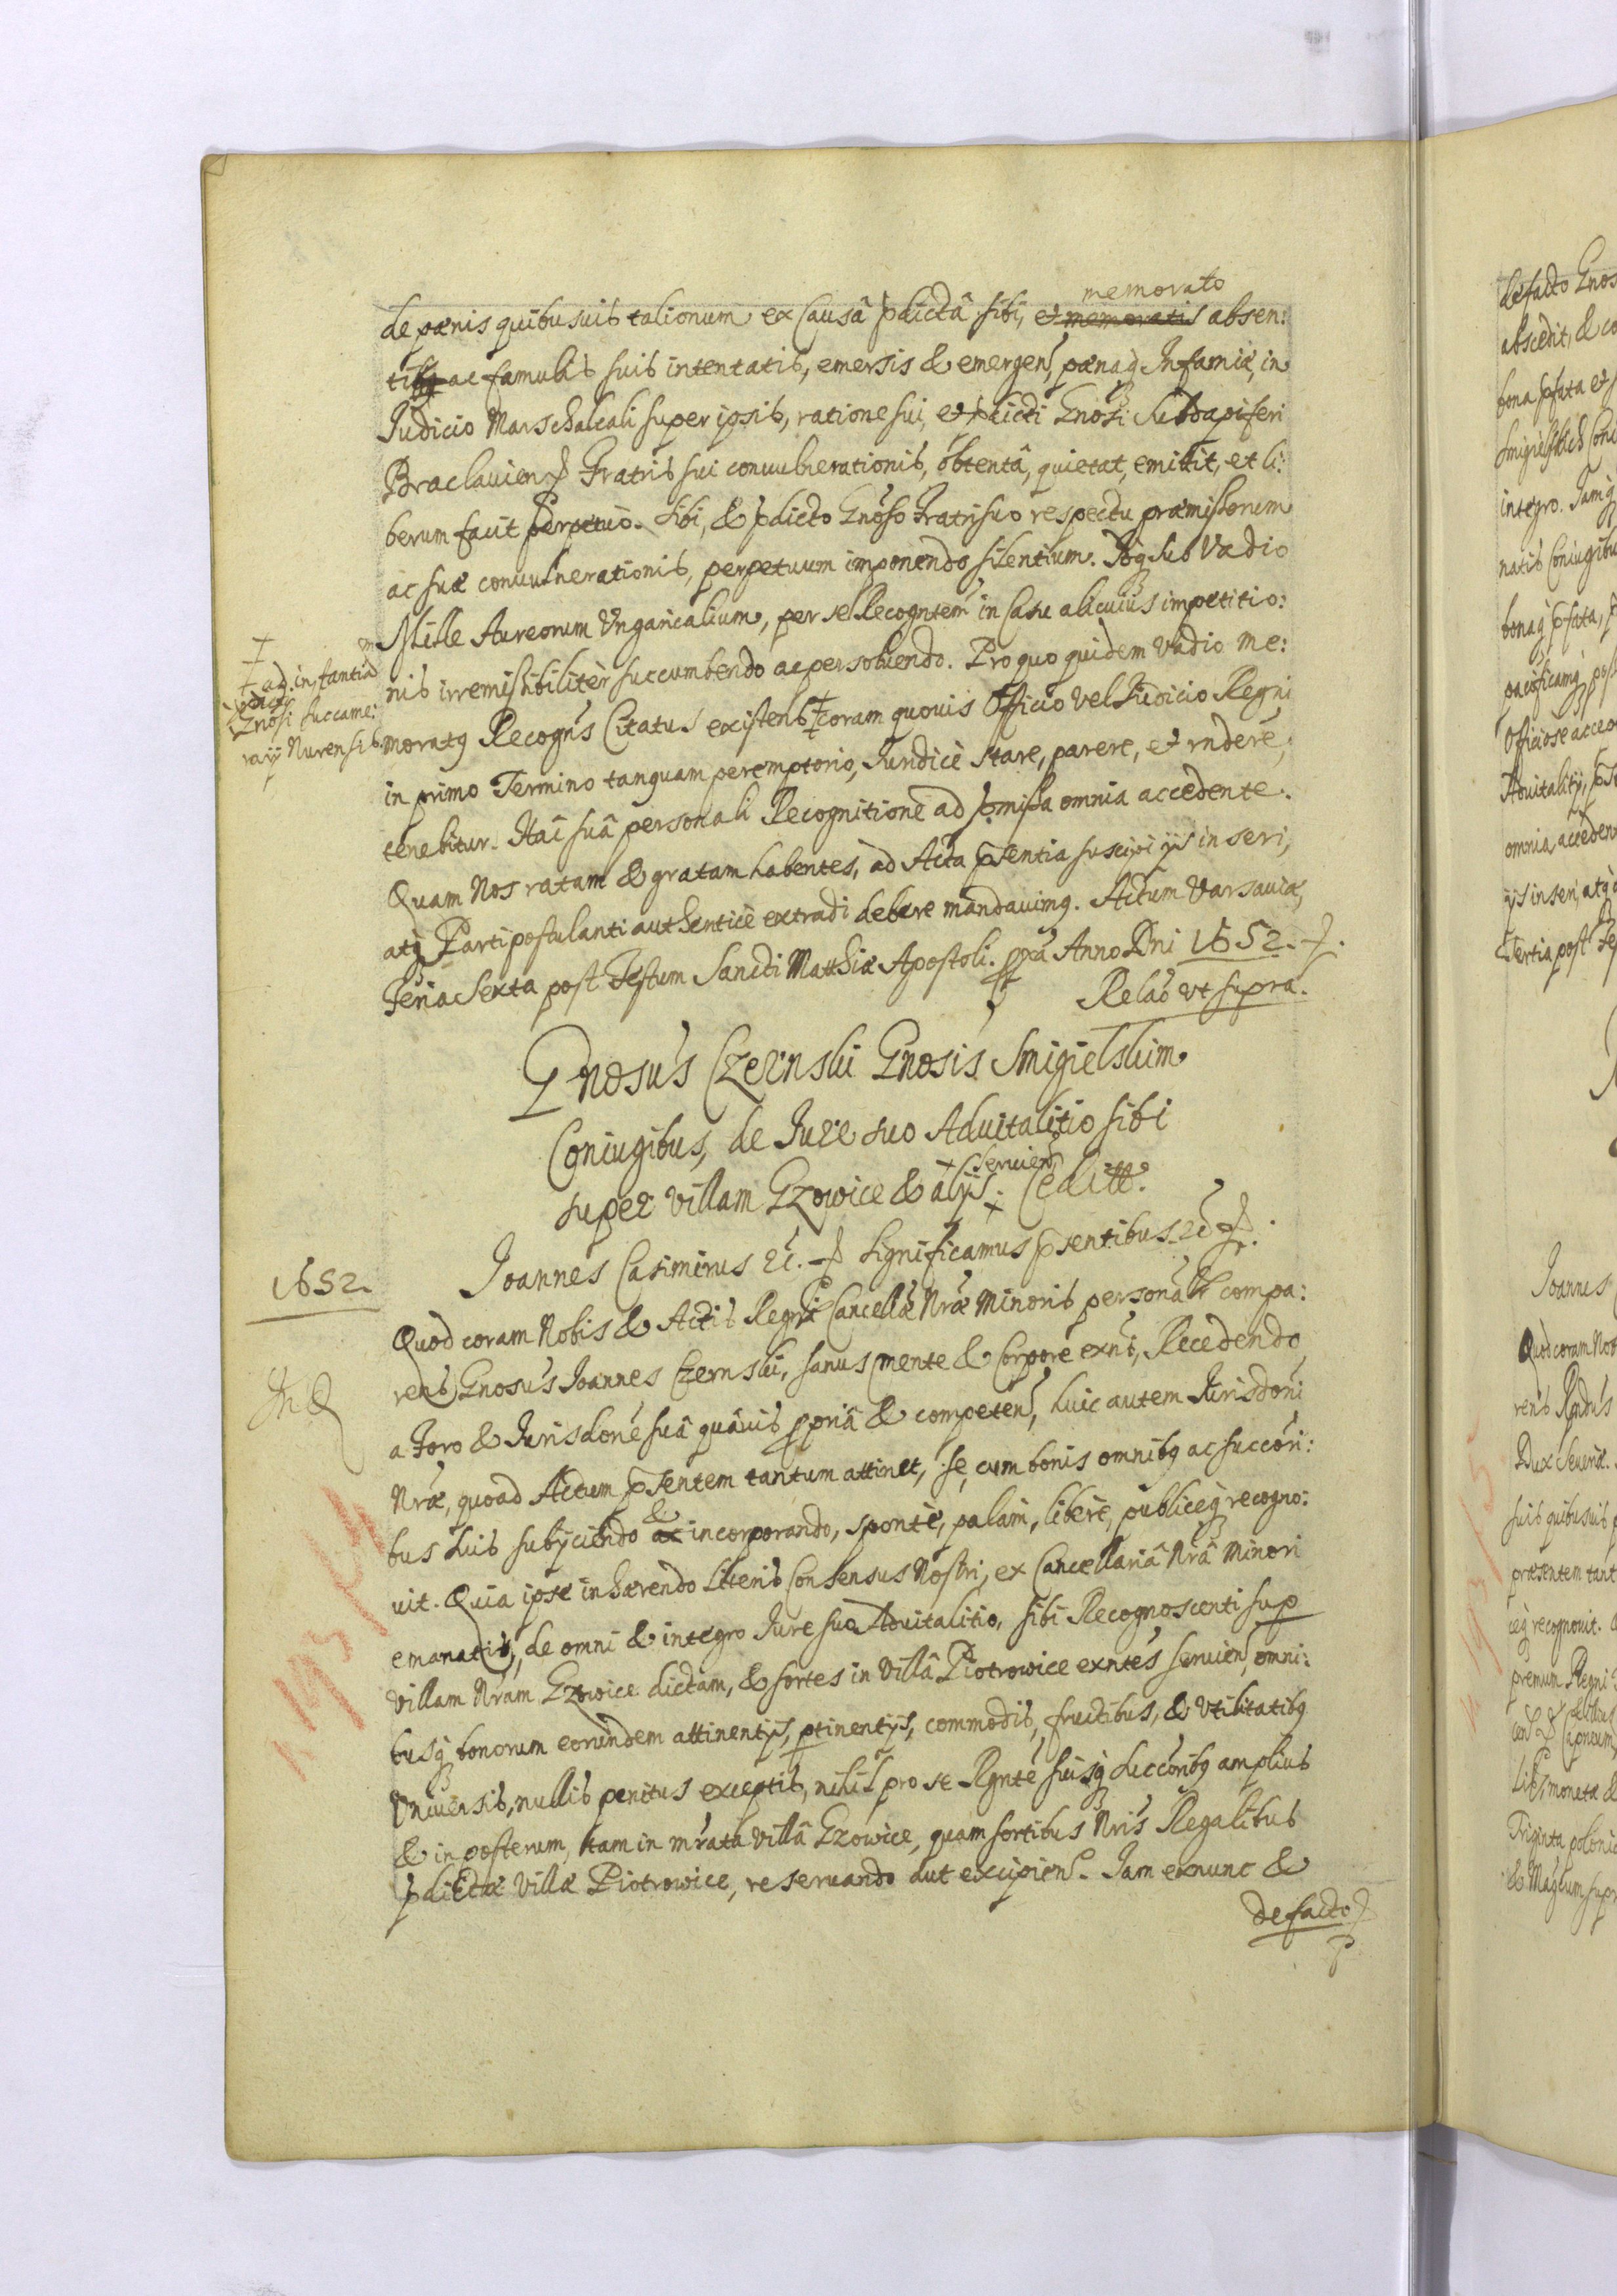 memorato
de pœnis quibusuis talionum ex Causâ pdictâ sibi, et memoratis absen:
tibq ac famulis suis intentatis, emersis & emergen, pœnaq Infamiæ, in
Judicio Marschalcali super ipsis, ratione sui, et pdicti Gnosi Subdapiferi
Braclauien Fratris sui conuulnerationis, obtentâ, quietat, emittit, et li:
berum facit perpetuò. Sibi, & pdicto Gnoso Fratri suo respectu præmissorum
ac suæ conuulnerationis, perpetuum imponendo silentium. Idq sub Vadio
Mille Aureorum Vngaricalium, per se Recogntem in Casu alicuius impetitio:
nis irremissibilitèr succumbendo ac persoluendo. Pro quo quidem Vadio me:
moratq Recogns Citatus existens ‡ coram quouis Officio vel Judicio Regni
in primo Termino tanquam peremptorio, Juridicè stare, parere, et rndere,
tenebitur. Hac suâ personali Recognitione ad pmissa omnia accedente.
Quam Nos ratam & gratam habentes, ad Acta psentia suscipi ijs inseri,
atq Parti postulanti authenticè extradi debere mandauimq. Actum Varsauiæ,
Feria Sexta post Festum Sancti Matthiæ Apostoli. pxa Anno Dni 1652.
Relao vt supra.
‡ ad instantia
pdicti
Gnosi Succame:
rarij Nurensis.
Gnosus Czernski Gnosis Smigielskim
Coniugibus, de Jure suo Aduitalitio sibi
seruien
super villam Gzowice & alijs. Cedit.
1652.
Joannes Casimirus &c. Significamus psentibus &c.
Quod coram Nobis & Actis Regni Cancellæ Nræ Minoris personalr compa:
rens Gnosus Joannes Czernski, sanus mente & Corpore exnt, Recedendo
a Foro & Jurisdone suâ quâuis ppriâ & competen, huic autem Jurisdoni
Nræ, quoad Actum psentem tantum attinet, se, cum bonis omnibq ac succori:
bus suis subijciendo & ac incorporando, spontè, palam, liberè, publiceq recogno:
uit. Quia ipse inhærendo Literis Consensus Nostri, ex Cancellariâ Nrâ Minori
emanatis, de omni & integro Jure suo Aduitalitio, sibi Recognoscenti sup
villam Nram Gzowice dictam, & sortes in Villâ Piotrowice exntes seruien, omni:
busq bonorum eorundem attinentijs, ptinentijs, commodis, fructibus, & Vtilitatibq
Vniuersis, nullis penitus exceptis, nihil pro se Rgnte suisq succoribq amplius
& in posterum, tam in mrata villâ Gzowice, quam sortibus Nris Regalibus
pdictæ villæ Piotrowice, reseruando aut excipien. Jam exnunc &
de facto